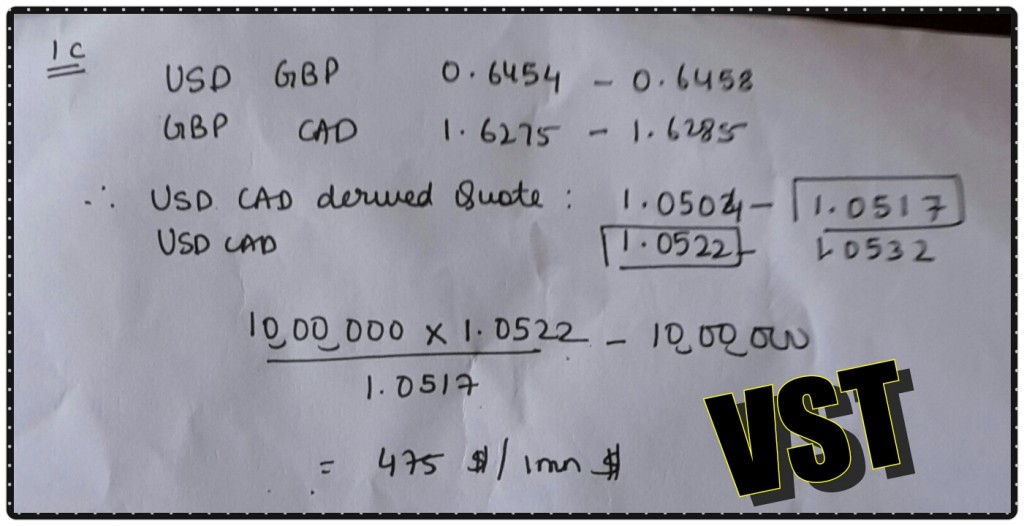 1c
USD GBP 0.6454 - 0.6458
GBP CAD 1.6275 - 1.6285
∴ USD CAD derived Quote : 1.0504 - 1.0517
USD CAD 1.0522 - 1.0532
10,00,000 x 1.0522 - 10,00,000
1.0517
= 475 $/1mn $
VST